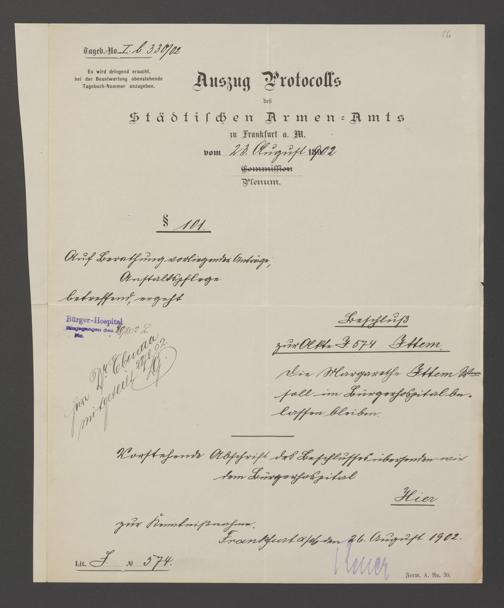 56
Tageb.-No. I. b 330/02
Es wird dringend ersucht,
bei der Beantwortung obenstehende
Tagebuch-Nummer anzugeben.
Auszug Protocolls
des
Städtischen Armen-Amts
zu Frankfurt a. M.
vom 23. August 1902
Commission
Plenum.
§ 101.
Auf Berathung vorliegenden Antrags,
Anstaltspflege
betreffend, ergeht
Bürger-Hospital
Eingegangen den
No.
Herrn Dr
mitgeteilt 29/8 02
Beschluß
zur Akte J 574 Ittem
Die Margarethe Ittem
soll im Bürgerhospital be-
lassen bleiben.
Vorstehende Abschrift des Beschlusses übersenden wir
dem Bürgerhospital
Hier
zur Kenntnißnahme.
Frankfurt a/M, den 26. August 1902.
Lit. J № 574.
Form. A. No. 30.